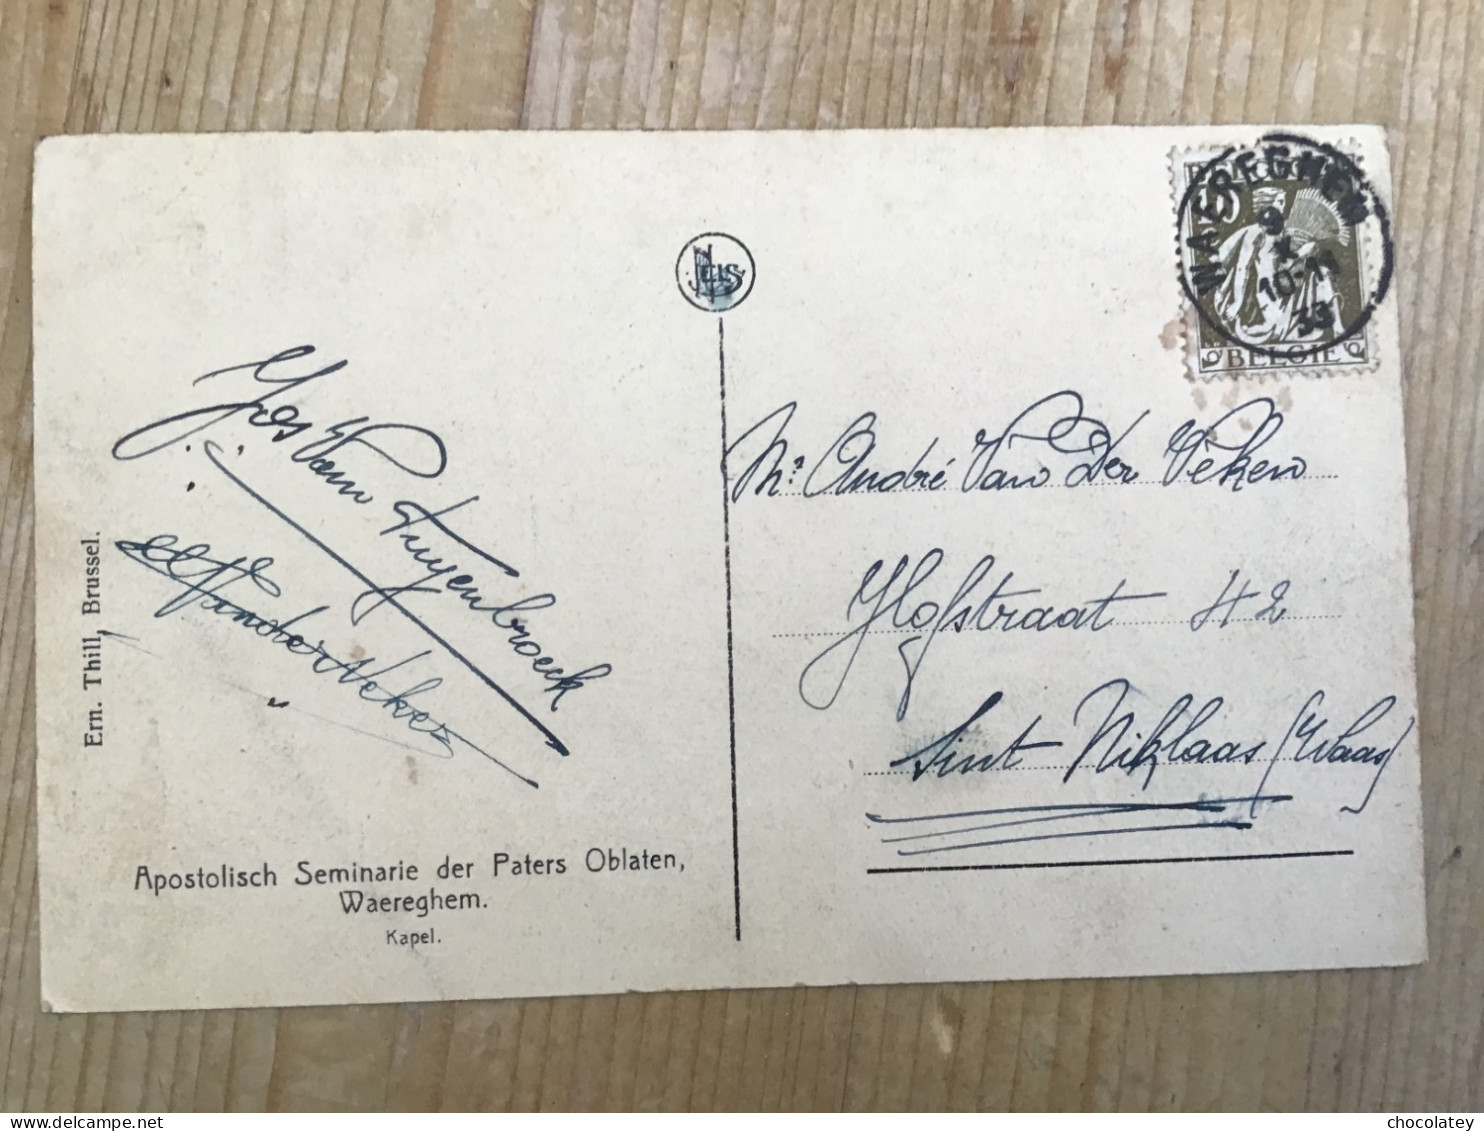 WAEREGHEM
9
X
10-11
33
BELGIE
NELS
Jos Van Puyenbroeck
Mr André Van Der Veken
Hofstraat 42
Sint Niklaas (Waas)
Ern. Thill, Brussel.
Apostolisch Seminarie der Paters Oblaten,
Waereghem.
Kapel.
chocolatey